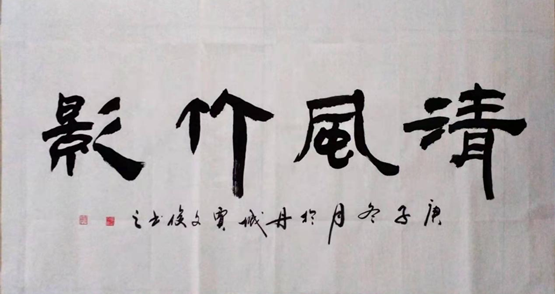 清風竹影
庚子冬月於丹城賓文俊书之